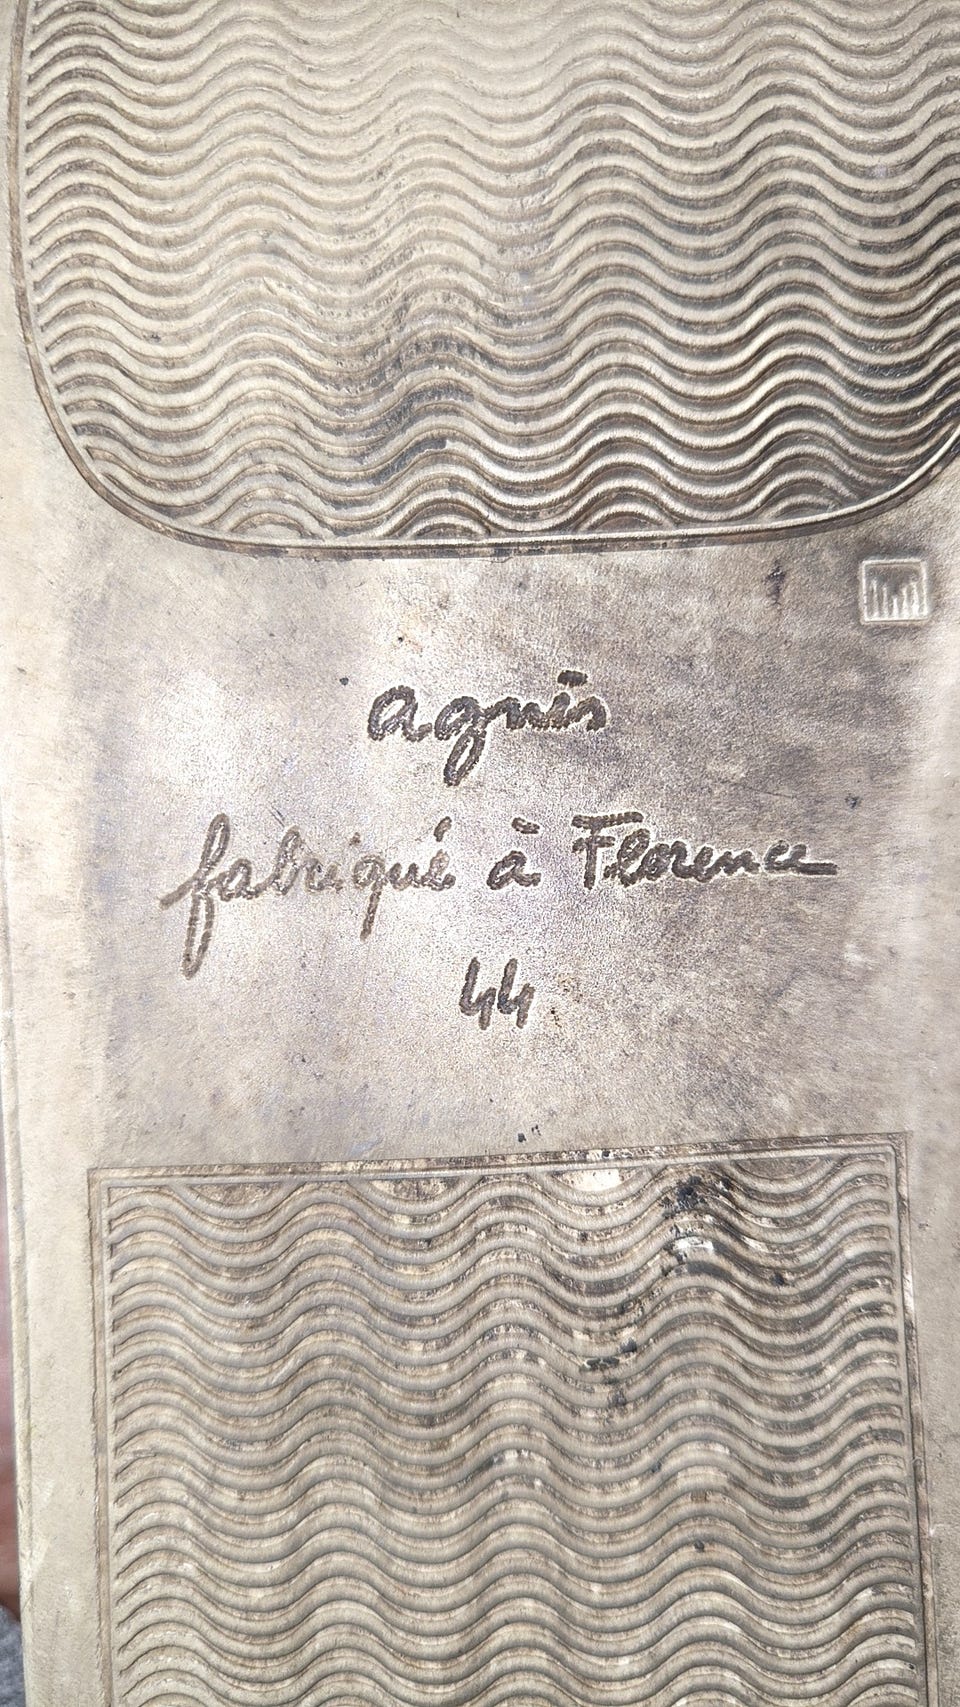 agnis
fabriqué à Florence
44